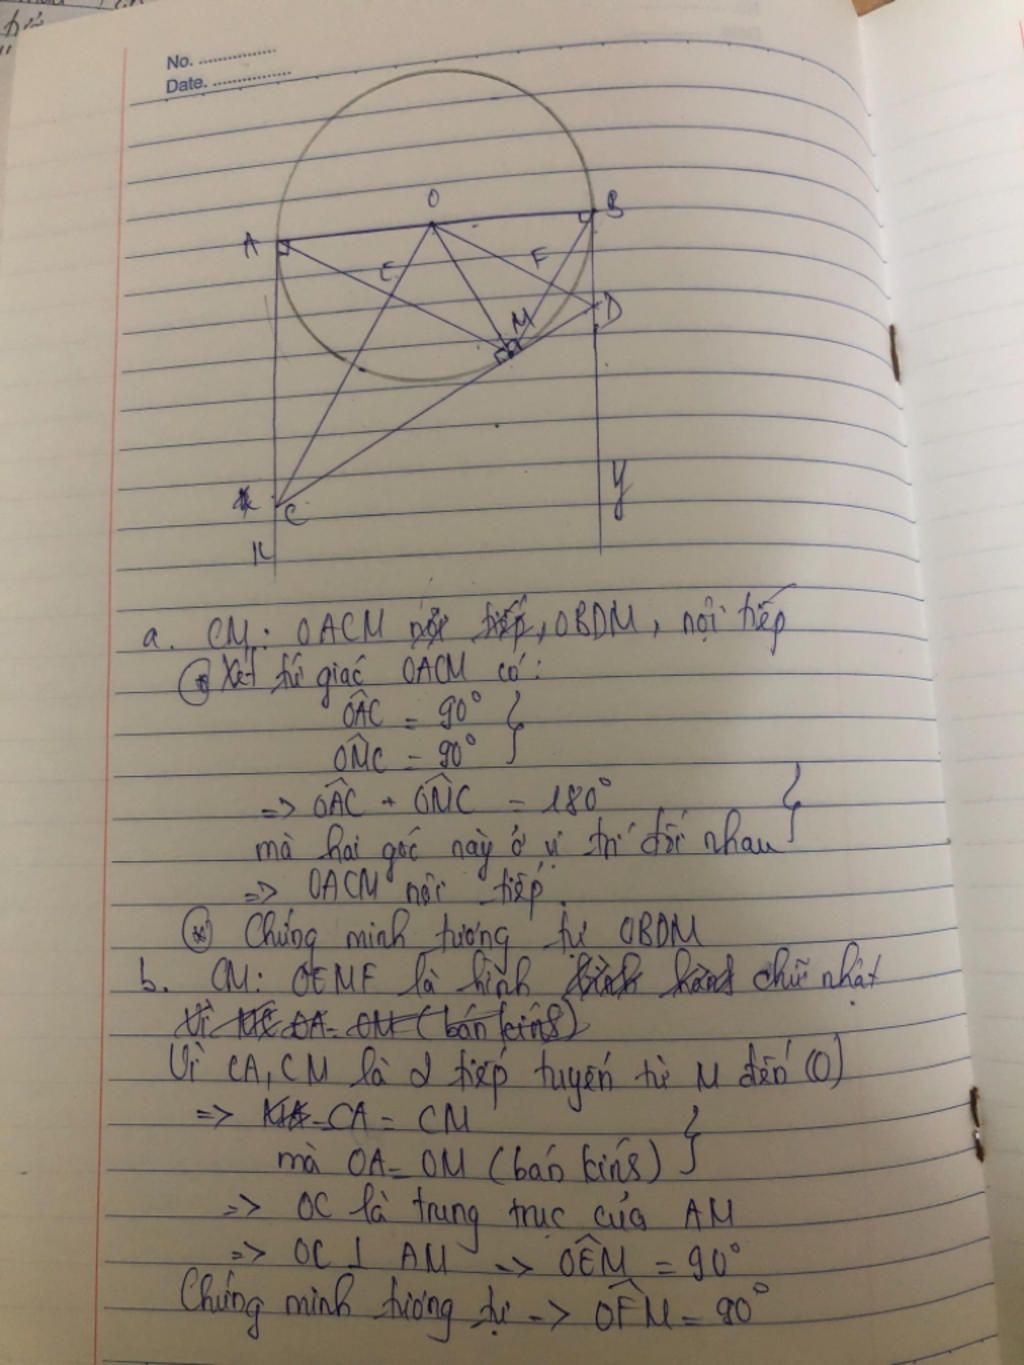 No. ...............
Date. ...............
O
B
A
E
F
M
D
C
y
a. CM: OACM nội tiếp, OBDM, nội tiếp
Xét tứ giác OACM có:
OÂC = 90°
OM̂C = 90°
=> OÂC + OM̂C = 180°
mà hai góc này ở vị trí đối nhau
=> OACM nội tiếp.
Chứng minh tương tự OBDM
b. CM: OEMF là hình bình hành chữ nhật
Vì MC OA = OM (bán kính)
Vì CA, CM là 2 tiếp tuyến từ M đến (O)
=> CA = CM
mà OA = OM (bán kính)
=> OC là trung trực của AM
=> OC ⊥ AM => OÊM = 90°
Chứng minh tương tự -> OF̂M = 90°